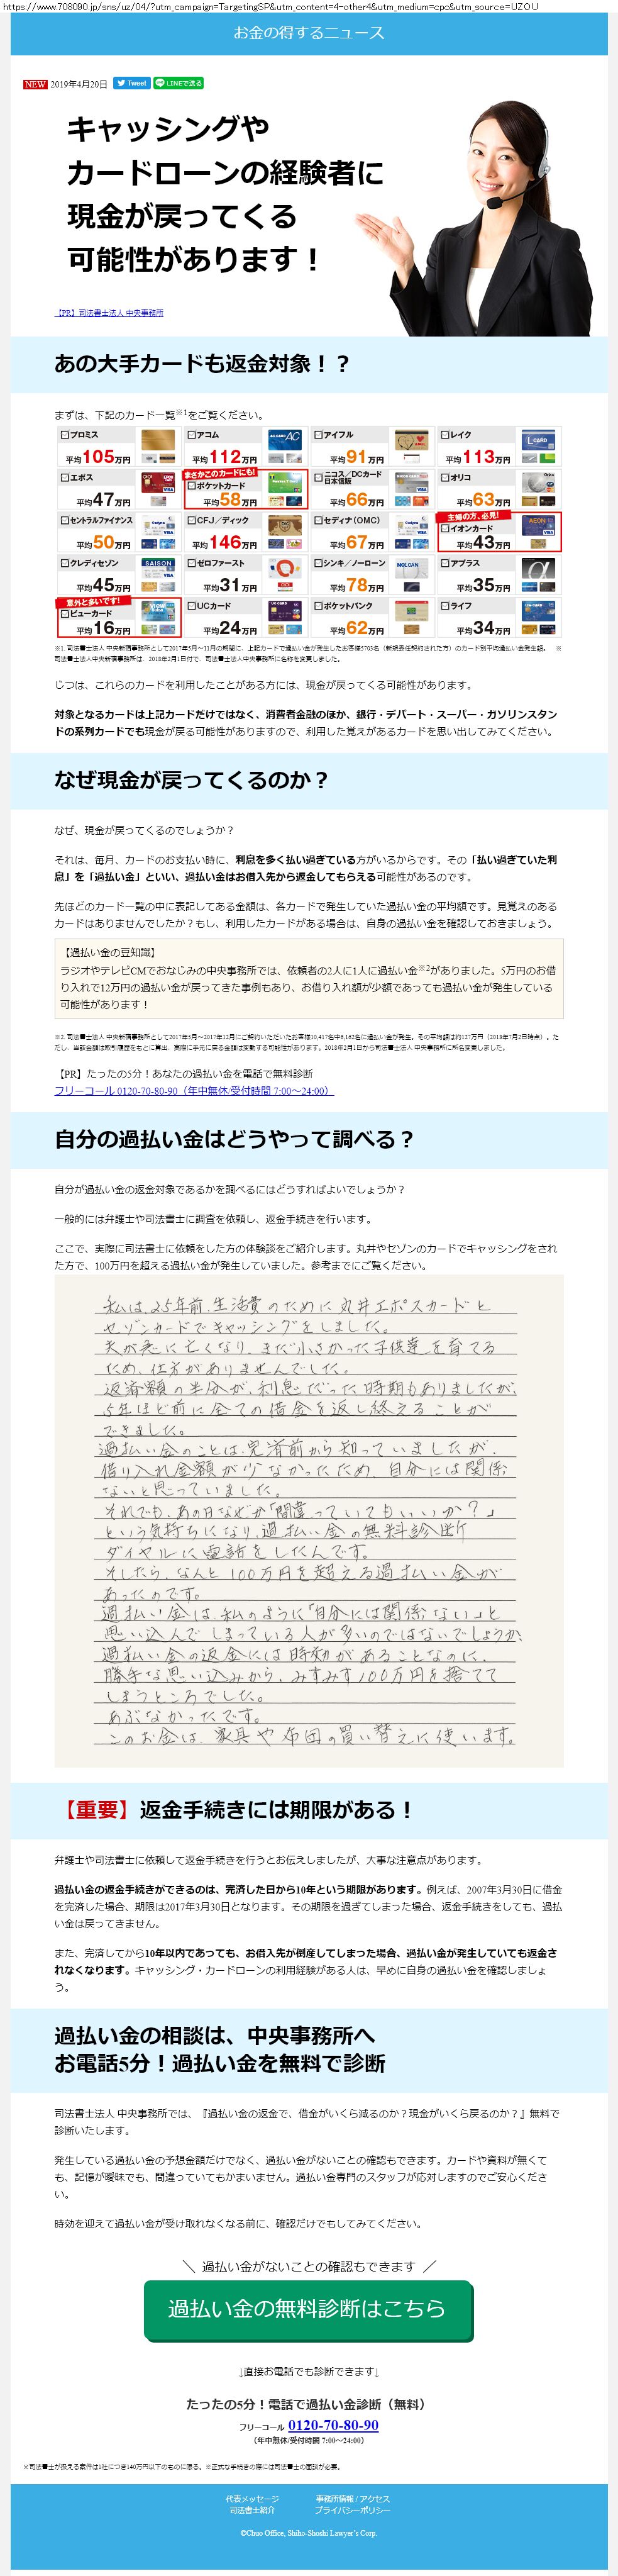 https://www.708090.jp/sns/uz/04/?utm_campaign=TargetingSP&utm_content=4-other4&utm_medium=cpc&utm_source=UZOU
お金の得するニュース
NEW 2019年4月20日 Tweet LINEで送る
キャッシングや
カードローンの経験者に
現金が戻ってくる
可能性があります！
【PR】司法書士法人 中央事務所
あの大手カードも返金対象！？
まずは、下記のカード一覧※1をご覧ください。
プロミス 平均105万円
アコム 平均112万円
アイフル 平均91万円
レイク 平均113万円
エポス 平均47万円
まさかこのカードにも!
ポケットカード 平均58万円
ニコス／DCカード
日本信販 平均66万円
オリコ 平均63万円
セントラルファイナンス 平均50万円
CFJ／ディック 平均146万円
セディナ(OMC) 平均67万円
主婦の方、必見!
イオンカード 平均43万円
クレディセゾン 平均45万円
ゼロファースト 平均31万円
シンキ／ノーローン 平均78万円
アプラス 平均35万円
意外と多いです!
ビューカード 平均16万円
UCカード 平均24万円
ポケットバンク 平均62万円
ライフ 平均34万円
※1. 司法■士法人 中央新宿事務所として2017年5月〜11月の期間に、上記カードで過払い金が発生したお客様5703名（新規委任契約された方）のカード別平均過払い金発生額。 ※
司法■士法人中央新宿事務所は、2018年2月1日付で、司法■士法人中央事務所に名称を変更しました。
じつは、これらのカードを利用したことがある方には、現金が戻ってくる可能性があります。
対象となるカードは上記カードだけではなく、消費者金融のほか、銀行・デパート・スーパー・ガソリンスタン
ドの系列カードでも現金が戻る可能性がありますので、利用した覚えがあるカードを思い出してみてください。
なぜ現金が戻ってくるのか？
なぜ、現金が戻ってくるのでしょうか？
それは、毎月、カードのお支払い時に、利息を多く払い過ぎている方がいるからです。その「払い過ぎていた利
息」を「過払い金」といい、過払い金はお借入先から返金してもらえる可能性があるのです。
先ほどのカード一覧の中に表記してある金額は、各カードで発生していた過払い金の平均額です。見覚えのある
カードはありませんでしたか？もし、利用したカードがある場合は、自身の過払い金を確認しておきましょう。
【過払い金の豆知識】
ラジオやテレビCMでおなじみの中央事務所では、依頼者の2人に1人に過払い金※2がありました。5万円のお借
り入れで12万円の過払い金が戻ってきた事例もあり、お借り入れ額が少額であっても過払い金が発生している
可能性があります！
※2. 司法■士法人 中央新宿事務所として2017年5月〜2017年12月にご契約いただいたお客様10,417名中6,162名に過払い金が発生。その平均額は約127万円（2018年7月2日時点）。た
だし、当該金額は取引履歴をもとに算出、実際に手元に戻る金額は変動する可能性があります。2018年2月1日から司法■士法人 中央事務所に所名変更しました。
【PR】たったの5分！あなたの過払い金を電話で無料診断
フリーコール 0120-70-80-90（年中無休/受付時間 7:00〜24:00）
自分の過払い金はどうやって調べる？
自分が過払い金の返金対象であるかを調べるにはどうすればよいでしょうか？
一般的には弁護士や司法書士に調査を依頼し、返金手続きを行います。
ここで、実際に司法書士に依頼をした方の体験談をご紹介します。丸井やセゾンのカードでキャッシングをされ
た方で、100万円を超える過払い金が発生していました。参考までにご覧ください。
私は、25年前、生活費のために丸井エポスカードと
セゾンカードでキャッシングをしました。
夫が急に亡くなり、まだ小さかった子供達を育てる
ため、仕方がありませんでした。
返済額の半分が、利息だった時期もありましたが、
5年ほど前に全ての借金を返し終えることが
できました。
過払い金のことは、完済前から知っていましたが、
借り入れ金額が少なかったため、自分には関係
ないと思っていました。
それでも、あの日なぜか「間違っていてもいいか？」
という気持ちになり、過払い金の無料診断
ダイヤルに電話をしたんです。
そしたら、なんと100万円を超える過払い金が
あったのです。
過払い金は、私のように「自分には関係ない」と
思い込んでしまっている人が多いのではないでしょうか。
過払い金の返金には時効があることなのに、
勝手な思い込みから、みすみす100万円を捨てて
しまうところでした。
あぶなかったです。
このお金は、家具や布団の買い替えに使います。
【重要】返金手続きには期限がある！
弁護士や司法書士に依頼して返金手続きを行うとお伝えしましたが、大事な注意点があります。
過払い金の返金手続きができるのは、完済した日から10年という期限があります。例えば、2007年3月30日に借金
を完済した場合、期限は2017年3月30日となります。その期限を過ぎてしまった場合、返金手続きをしても、過払
い金は戻ってきません。
また、完済してから10年以内であっても、お借入先が倒産してしまった場合、過払い金が発生していても返金さ
れなくなります。キャッシング・カードローンの利用経験がある人は、早めに自身の過払い金を確認しましょ
う。
過払い金の相談は、中央事務所へ
お電話5分！過払い金を無料で診断
司法書士法人 中央事務所では、『過払い金の返金で、借金がいくら減るのか？現金がいくら戻るのか？』無料で
診断いたします。
発生している過払い金の予想金額だけでなく、過払い金がないことの確認もできます。カードや資料が無くて
も、記憶が曖昧でも、間違っていてもかまいません。過払い金専門のスタッフが応対しますのでご安心くださ
い。
時効を迎えて過払い金が受け取れなくなる前に、確認だけでもしてみてください。
＼ 過払い金がないことの確認もできます ／
過払い金の無料診断はこちら
↓直接お電話でも診断できます↓
たったの5分！電話で過払い金診断（無料）
フリーコール 0120-70-80-90
（年中無休/受付時間 7:00〜24:00）
※司法■士が扱える案件は1社につき140万円以下のものに限る。※正式な手続きの際には司法■士の面談が必要。
代表メッセージ 事務所情報 / アクセス
司法書士紹介 プライバシーポリシー
©Chuo Office, Shiho-Shoshi Lawyer's Corp.